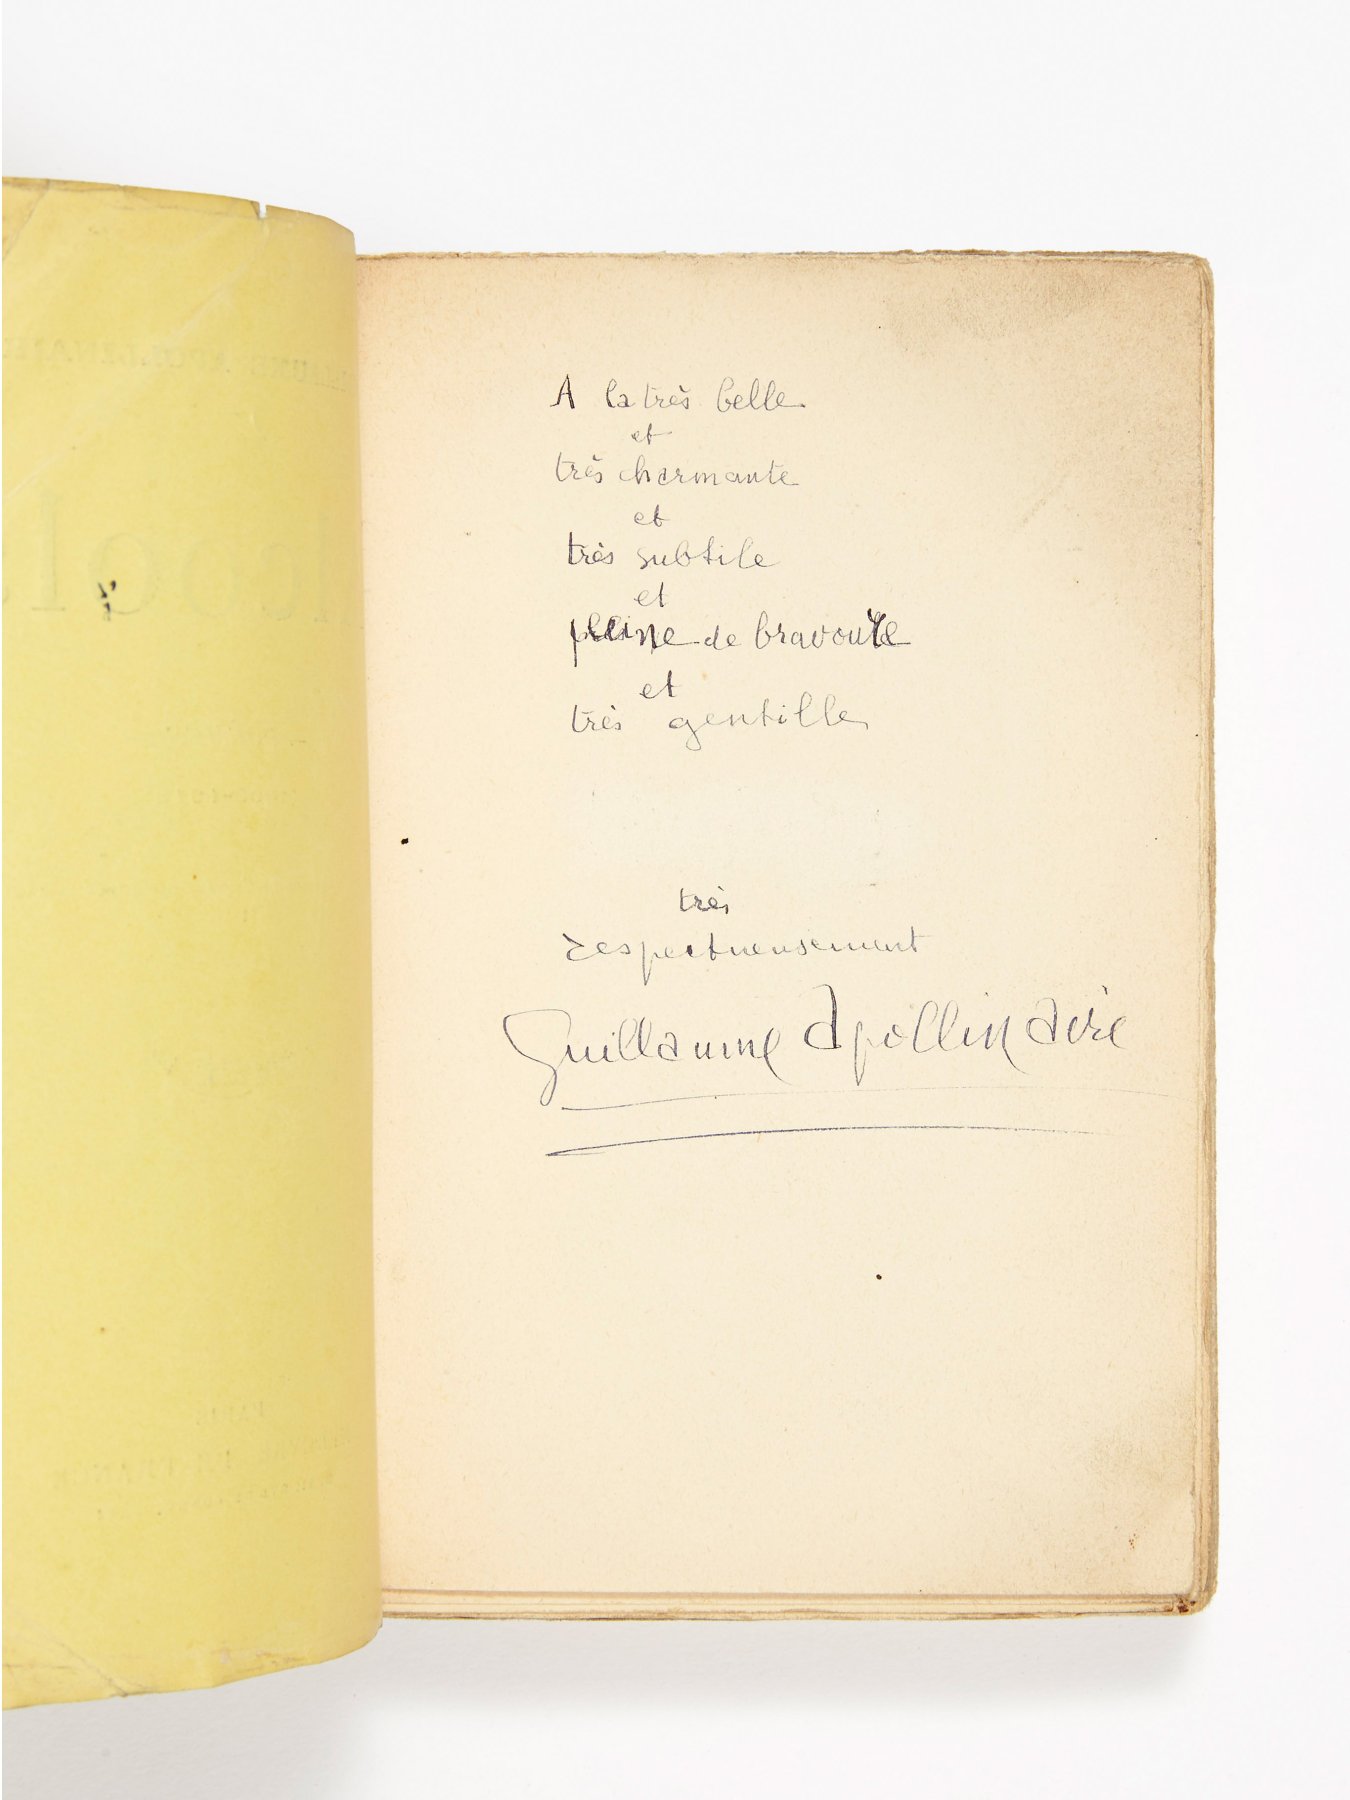 A la très belle
et
très charmante
et
très subtile
et
pleine de bravoure
et
très gentille
très
respectueusement
Guillaume Apollinaire